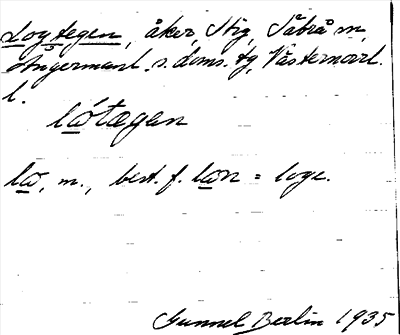 Logtegen, åker, Stig, Säbrå sn,
Ångermanl. s. doms. tg, Västernorrl.
l.
låtægen
la, m., best. f. lan = loge.
Gunnel Berlin 1935